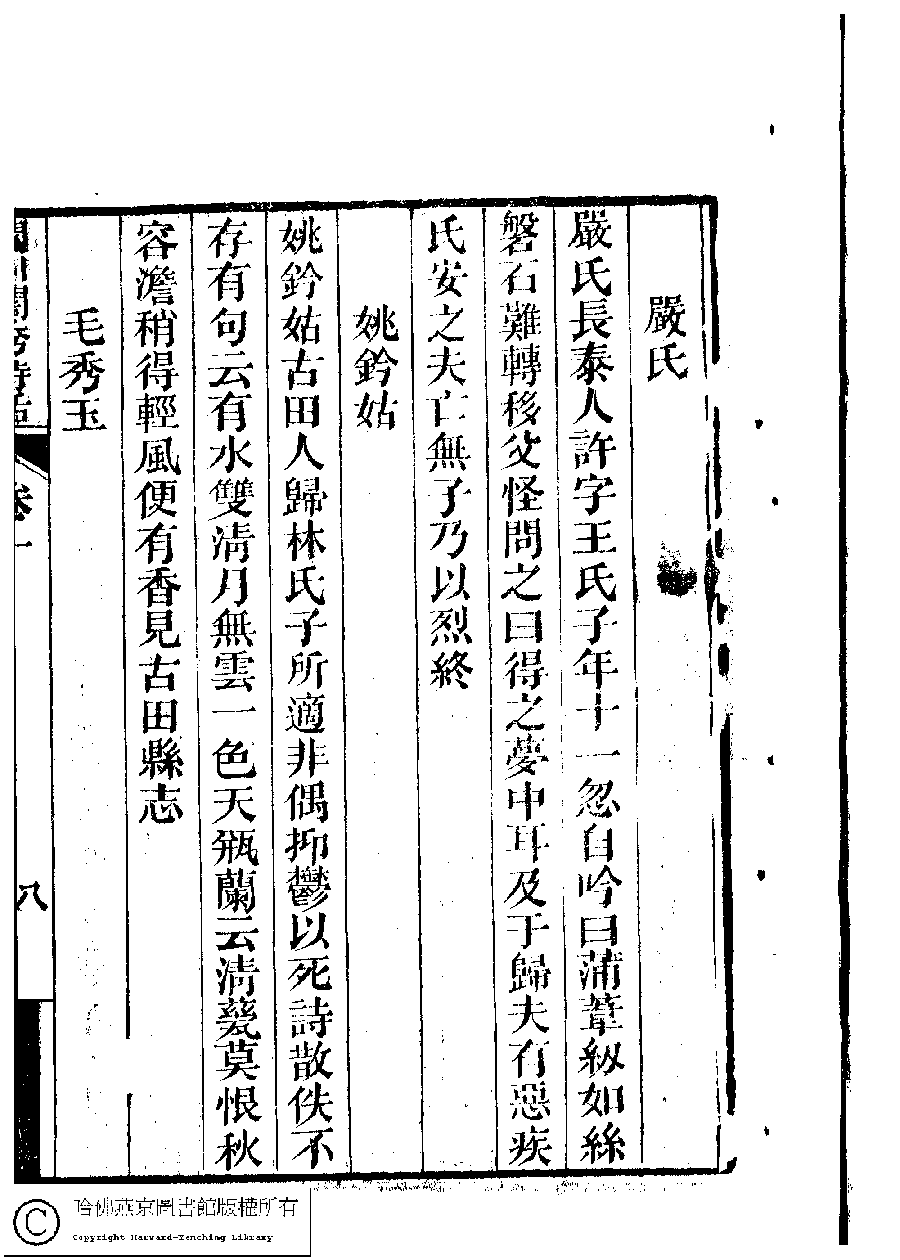 嚴氏
嚴氏長泰人許字王氏子年十一忽自吟曰蒲葦紉如絲
磐石難轉移父怪問之曰得之夢中耳及于歸夫有惡疾
氏安之夫亡無子乃以烈終
姚鈐姑
姚鈐姑古田人歸林氏子所適非偶抑鬱以死詩散佚不
存有句云有水雙清月無雲一色天瓶蘭云清甆莫恨秋
容澹稍得輕風便有香見古田縣志
毛秀玉
閨秀詩話
卷一
八
哈佛燕京圖書館版權所有
Copyright Harvard-Yenching Library